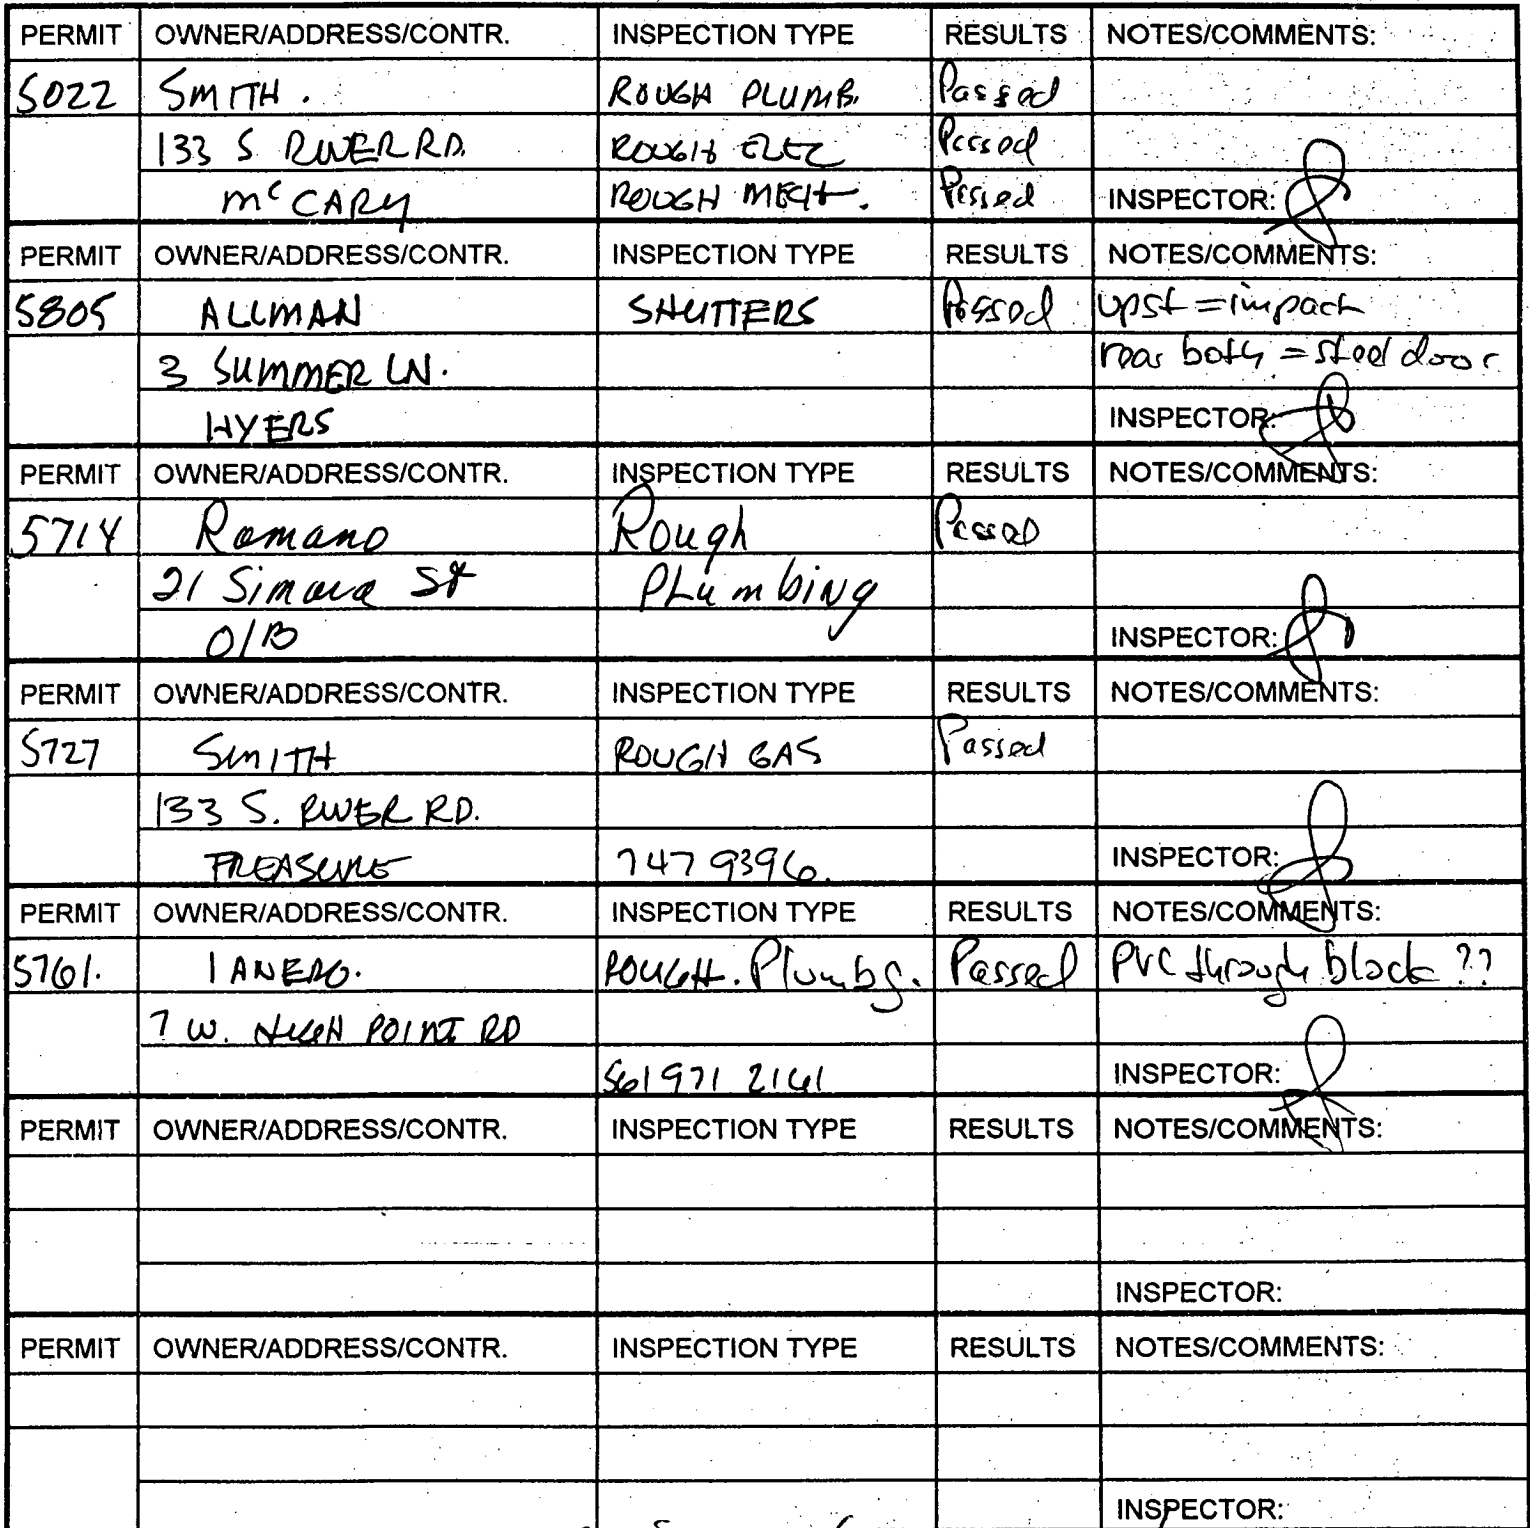 PERMIT OWNER/ADDRESS/CONTR. INSPECTION TYPE RESULTS NOTES/COMMENTS:
5022 SMITH. ROUGH PLUMB. Passed
133 S RIVER RD. ROUGH ELEC Passed
McCARY ROUGH MECH. Passed INSPECTOR:
PERMIT OWNER/ADDRESS/CONTR. INSPECTION TYPE RESULTS NOTES/COMMENTS:
5805 ALLMAN SHUTTERS Passed upst = impact
3 SUMMER LN. rear both = steel door
HYERS INSPECTOR:
PERMIT OWNER/ADDRESS/CONTR. INSPECTION TYPE RESULTS NOTES/COMMENTS:
5714 Romano Rough Passed
21 Simara St PLumbing
O/B INSPECTOR:
PERMIT OWNER/ADDRESS/CONTR. INSPECTION TYPE RESULTS NOTES/COMMENTS:
5727 SMITH ROUGH GAS Passed
133 S. RIVER RD.
TREASURE 747 9396. INSPECTOR:
PERMIT OWNER/ADDRESS/CONTR. INSPECTION TYPE RESULTS NOTES/COMMENTS:
5761. ROUGH. Plumbg. Passed PVC through block ??
7 W. HIGH POINT RD
561 971 2161 INSPECTOR:
PERMIT OWNER/ADDRESS/CONTR. INSPECTION TYPE RESULTS NOTES/COMMENTS:
INSPECTOR:
PERMIT OWNER/ADDRESS/CONTR. INSPECTION TYPE RESULTS NOTES/COMMENTS:
INSPECTOR: